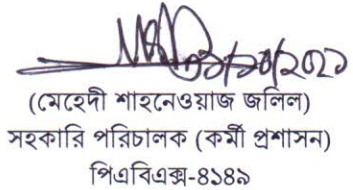 ৩১/১০/২০২১
(মেহেদী শাহনেওয়াজ জলিল)
সহকারি পরিচালক (কর্মী প্রশাসন)
পিএবিএক্স-৪১৪৯